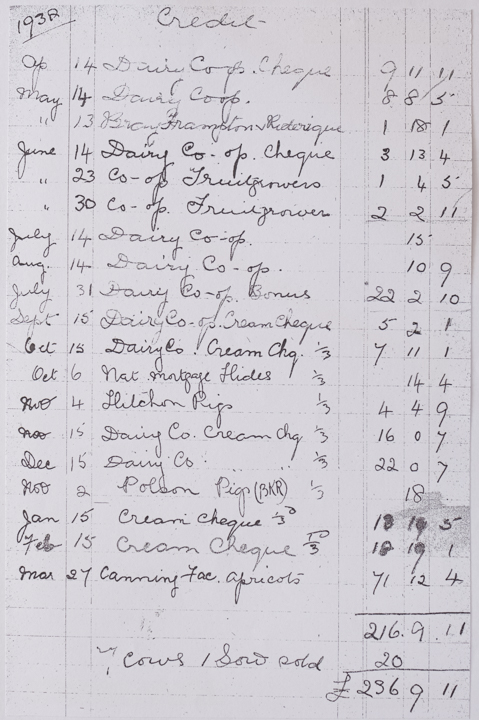 1938 Credit
Ap 14 Dairy Co op. Cheque 9 11 11
May 14 Dairy Coop. 8 8 5
" 13 Bray Frampton 1 18 1
June 14 Dairy Co-op. Cheque 3 13 4
" 23 Co-op Fruitgrowers 1 4 5
" 30 Co-op. Fruitgrowers 2 2 11
July 14 Dairy Co-op. 15
Aug. 14 Dairy Co-op. 10 9
July 31 Dairy Co-op Bonus 22 2 10
Sept 15 Dairy Co-op. Cream Cheque 5 2 1
Oct 15 Dairy Co. Cream Chq. 1/3 7 11 1
Oct 6 Nat. Mortgage Hides 1/3 14 4
Nov 4 Hitchon Pigs 1/3 4 4 9
Nov 15 Dairy Co. Cream Chq 1/3 16 0 7
Dec 15 Dairy Co. 1/3 22 0 7
Nov 2 Polson Pigs (BKR) 1/3 18
Jan 15 Cream Cheque 18 19 5
Feb 15 Cream Cheque 18 19 1
Mar 27 Canning Fac. Apricots 71 12 4
216. 9. 11
7 Cows 1 Sow sold 20
£ 236 9 11